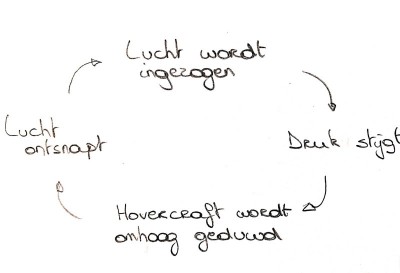 Lucht wordt
ingezogen
Druk stijgt
Hovercraft wordt
omhoog geduwd
Lucht
ontsnapt